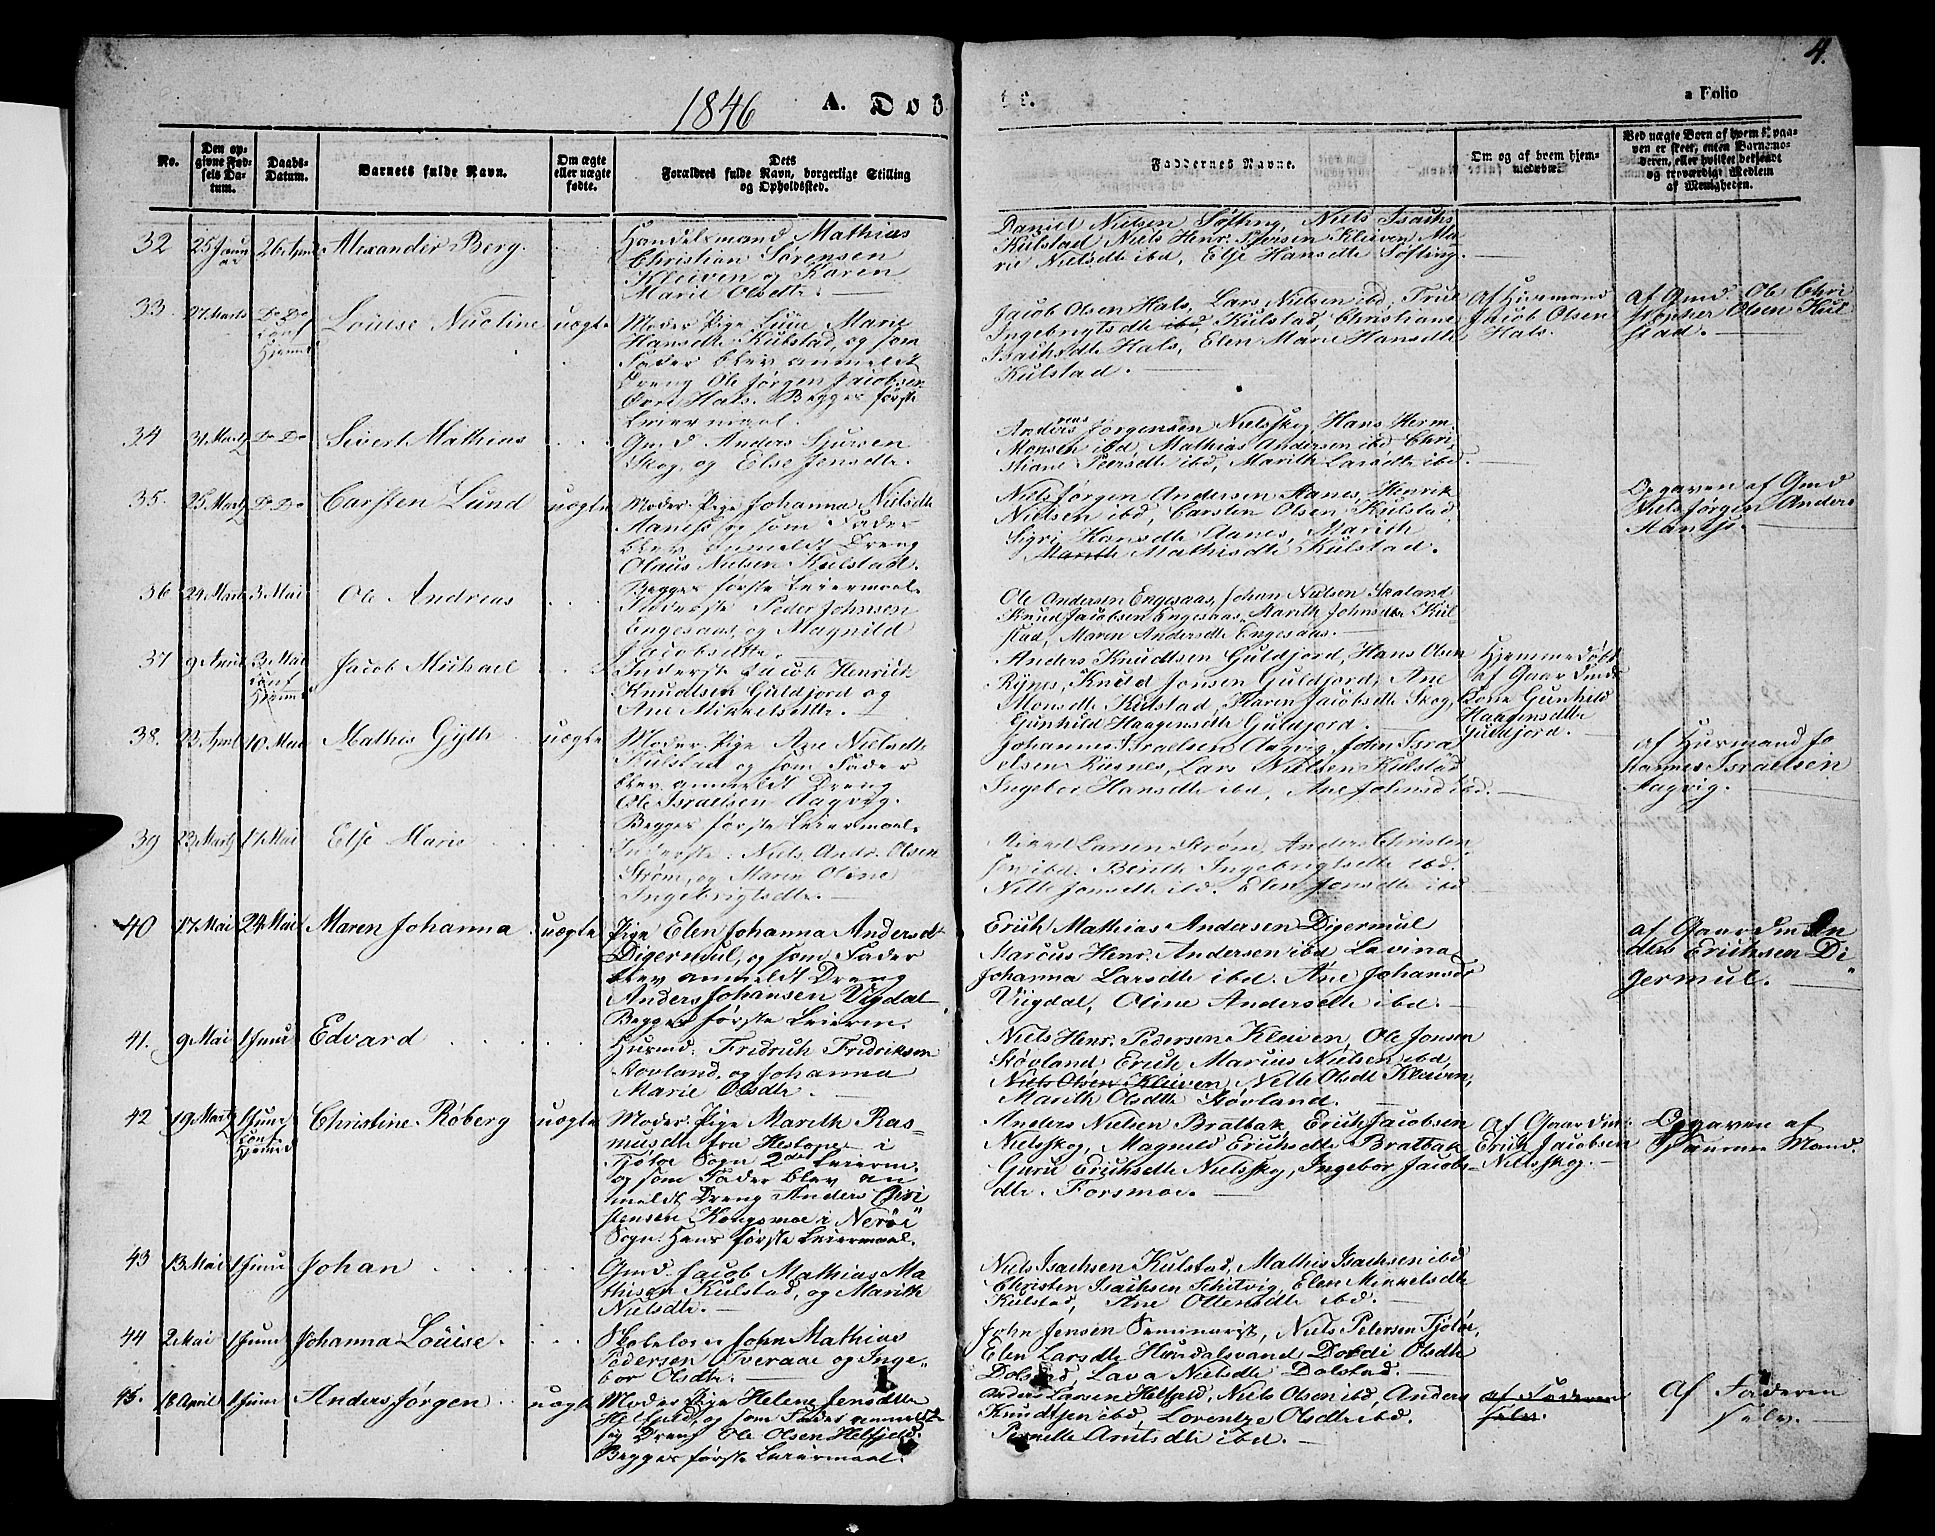 4.
1846 A. Dob
a Folio
No.
Den op-
givne Fød-
sels Da-
tum.
Daabs-
Datum.
Barnets fulde Navn.
Om ægte
eller uægte
fødte.
Dets
Forældres fulde Navn, borgerlige Stilling
og Opholdssted.
Faddernes Navne.
Om og af hvem hjem-
medøbt.
Ved uægte Børn af hvem Opgaa-
ven er skeet, enten Barnemo-
deren, eller hvilket bekjendt
og troværdigt Medlem
af Menigheden.
32 25 Januar 26 April Alexander Berg.
Handelsmand Mathias
Christian Sørensen
Kleiven og Karen
Marie Olsdtr.
Daniel Nielsen Søfting, Niels Isachs
Kulstad Niels Henr. Peersen Kleiven, Ma-
rie Nielsdtr ibd, Else Hansdtr Søfting.
33. 27 Marts Do Do Conf Hjemmed Louise Nicoline uægte
Moder: Pige Marie
Hansdtr Kulstad, og som
Fader blev anmeldt
Dreng Ole Jørgen Jacobsen
Hals. Begges første
Leiermaal.
Jacob Olsen Hals, Lars Nielsen ibd,
Ingebrigtsdtr Kulstad, Christiane
Isachsdtr Hals, Elen Marie Hansdtr
Kulstad.
Af Huusmand
Jacob Olsen
Hals.
Af Gmd. Ole Chri
stopher Olsen Kul
stad.
34 31 Marts Do Do Sivert Mathias
Gmd Anders Sjursen
Skog, og Else Jensdtr.
Andreas Jørgensen Nielsskog, Hans Herm.
Monsen ibd, Mathias Andersen ibd Chri
stiane Peersdtr ibd, Marith Larsdtr ibd.
35. 25 Marts Do Do Carsten Lund uægte
Moder: Pige Johanna Nielsdtr
Aanes, og som Fader
blev anmeldt Dreng
Olaus Nielsen Kulstad.
Begges første Leiermaal.
Niels Jørgen Andersen Aanes, Henrik
Nielsen ibd, Carsten Olsen Kulstad,
Sigri Hansdtr Aanes, Marith
Mathisdtr Kulstad.
Opgaven af Gmd
Niels Jørgen Anders
Aanes.
36 24 Marts 3 Mai Ole Andreas
Inderste Peder Johnsen
Engesaas, og Magnild
Jacobsdtr.
Ole Andersen Engesaas, Johan Nielsen Skaland
Knud Jacobsen Engesaas, Marith Johnsdtr Kul
stad, Maren Andersdtr Engesaas.
37 9 April 3 Mai Conf Hjemmed Jacob Michael
Inderste Jacob Henrik
Knudtsen Guldjord og
Ane Mikkelsdtr.
Anders Knudtsen Guldjord, Hans Olsen
Rynes, Knud Jonsen Guldjord, Ane
Monsdtr Kulstad, Karen Jacobsdtr Skog,
Gunhild Haagensdtr Guldjord.
Hjemmedøbt
af Gaardmds
Kone Gunhild
Haagensdtr
Guldjord.
38. 23 April 10 Mai Mathis Gyth uægte
Moder: Pige Ane Nielsdtr
Kulstad og som Fader
blev anmeldt Dreng
Ole Israelsen Aagvig.
Begges første Leiermaal.
Johannes Israelsen Aagvig, John Isra
elsen Rosnes, Lars Nielsen Kulstad
Ingebor Hansdtr ibd, Ane Johnsd ibd.
af Huusmand Jo
hannes Israelsen
Aagvig.
39 23 Marts 17 Mai Else Marie
Inderste: Niels Andr. Olsen
Strøm, og Maren Oline
Ingebrigtsdtr.
Mikkel Larsen Strøm, Anders Christen
sen ibd. Berith Ingebrigtsdtr ibd.
Nille Jonsdtr ibd. Elen Jonsdtr ibd
40 17 Mai 24 Mai Maren Johanna uægte
Pige Elen Johanna Andersdt
Digermul, og som Fader
blev anmeldt Dreng
Anders Johansen Vigdal
Begges første Leierm.
Erich Mathias Andersen Digermul
Marcus Henr. Andersen ibd Lavina
Johanna Larsdtr ibd. Ane Johansdr
Viigdal, Oline Andersdtr ibd.
af Gaardmd An
ders Erichsen Di
germul.
41. 9 Mai 1 Juni Edvard
Huusmd: Fridrich Fridriksen
Hovland, og Johanna
Marie Olsdtr.
Niels Henr: Pedersen Kleiven, Ole Jonsen
Høvland, Erich Marius Nielsen ibd,
Niels Olsen Kleiven, Nille Olsdt Kleiven,
Marith Olsdtr Høvland.
42 19 Marts 1 Juni Conf Hjemmed Christine Røberg uægte
Moder: Pige Marith Ras-
musdtr fra Hestope i
Tjøtøe Sogn 2det Leierm.
og som Fader blev an
meldt Dreng Anders Chri
stensen Kongsmoe i Nerøe
Sogn. Hans første Leiermaal.
Anders Nielsen Bratbak, Erich Jacobsen
Nielsskog, Magnild Erichsdtr Bratbak
Guru Erichsdtr Nielsskog, Ingebor Jacobs-
dtr. Forsmoe.
Af Gaardmd:
Erich Jacobsen
Nielsskog.
Opgaven af
samme Mand.
43 13 Mai 1 Juni Johan
Gmd. Jacob Mathias Ma
thisen Kulstad, og Marith
Nielsdtr.
Niels Isachsen Kulstad, Mathis Isachsen ibd
Christen Isachsen Schitvig, Elen Mikkelsdtr
Kulstad, Ane Ottersdtr ibd.
44 2 Mai 1 Juni Johanna Louise.
Skolelærer John Mathias
Pedersen Tveraae og Inge-
bor Olsdtr.
John Jensen Seminarist, Niels Petersen Tjøtøe,
Elen Larsdtr Hundalsvand Dordi Olsdtr
Dolstad, Lava Nielsdtr Dolstad.
45. 18 April 1 Juni Anders Jørgen uægte
Moder: Pige Helene Jensdtr
Helfjeld, og som Fader anmeldte
sig Dreng Ole Olsen Helfjeld.
Begges første Leiermaal.
Anders Larsen Helfjeld, Niels Olsen ibd, Anders
Knudtsen ibd, Lorentze Olsdtr ibd.
Pernelle Arntsdtr ibd.
af Faderen
selv.
Af Faderen
selv.